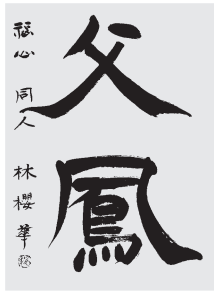 父鳳
福心 同人 林櫻華